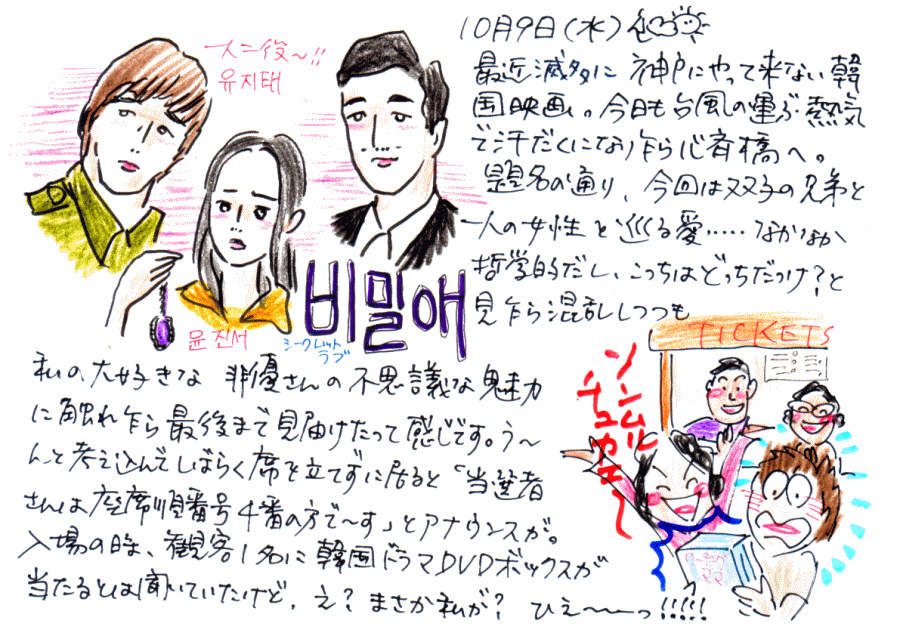 10月9日(水)
最近滅多に神戸にやって来ない韓
国映画。今日も台風の運ぶ熱気
で汗だくになり乍ら心斎橋へ。
題名の通り、今回は双子の兄弟と
一人の女性を巡る愛……なかなか
哲学的だし、こっちはどっちだっけ?と
見乍ら混乱しつつも
一人二役〜!!
유지태
윤진서
비밀애
シークレット
ラブ
私の大好きな 俳優さんの不思議な魅力
に触れ乍ら最後まで見届けたって感じです。う〜
んと考え込んでしばらく席を立てずに居ると「当選者
さんは座席順番号4番の方で〜す」とアナウンスが。
入場の時、観客1名に韓国ドラマDVDボックスが
当たるとは聞いていたけど、え?まさか私が? ひえ〜〜っ!!!!!
TICKETS
ソンムル
チュカヘ〜
ママ